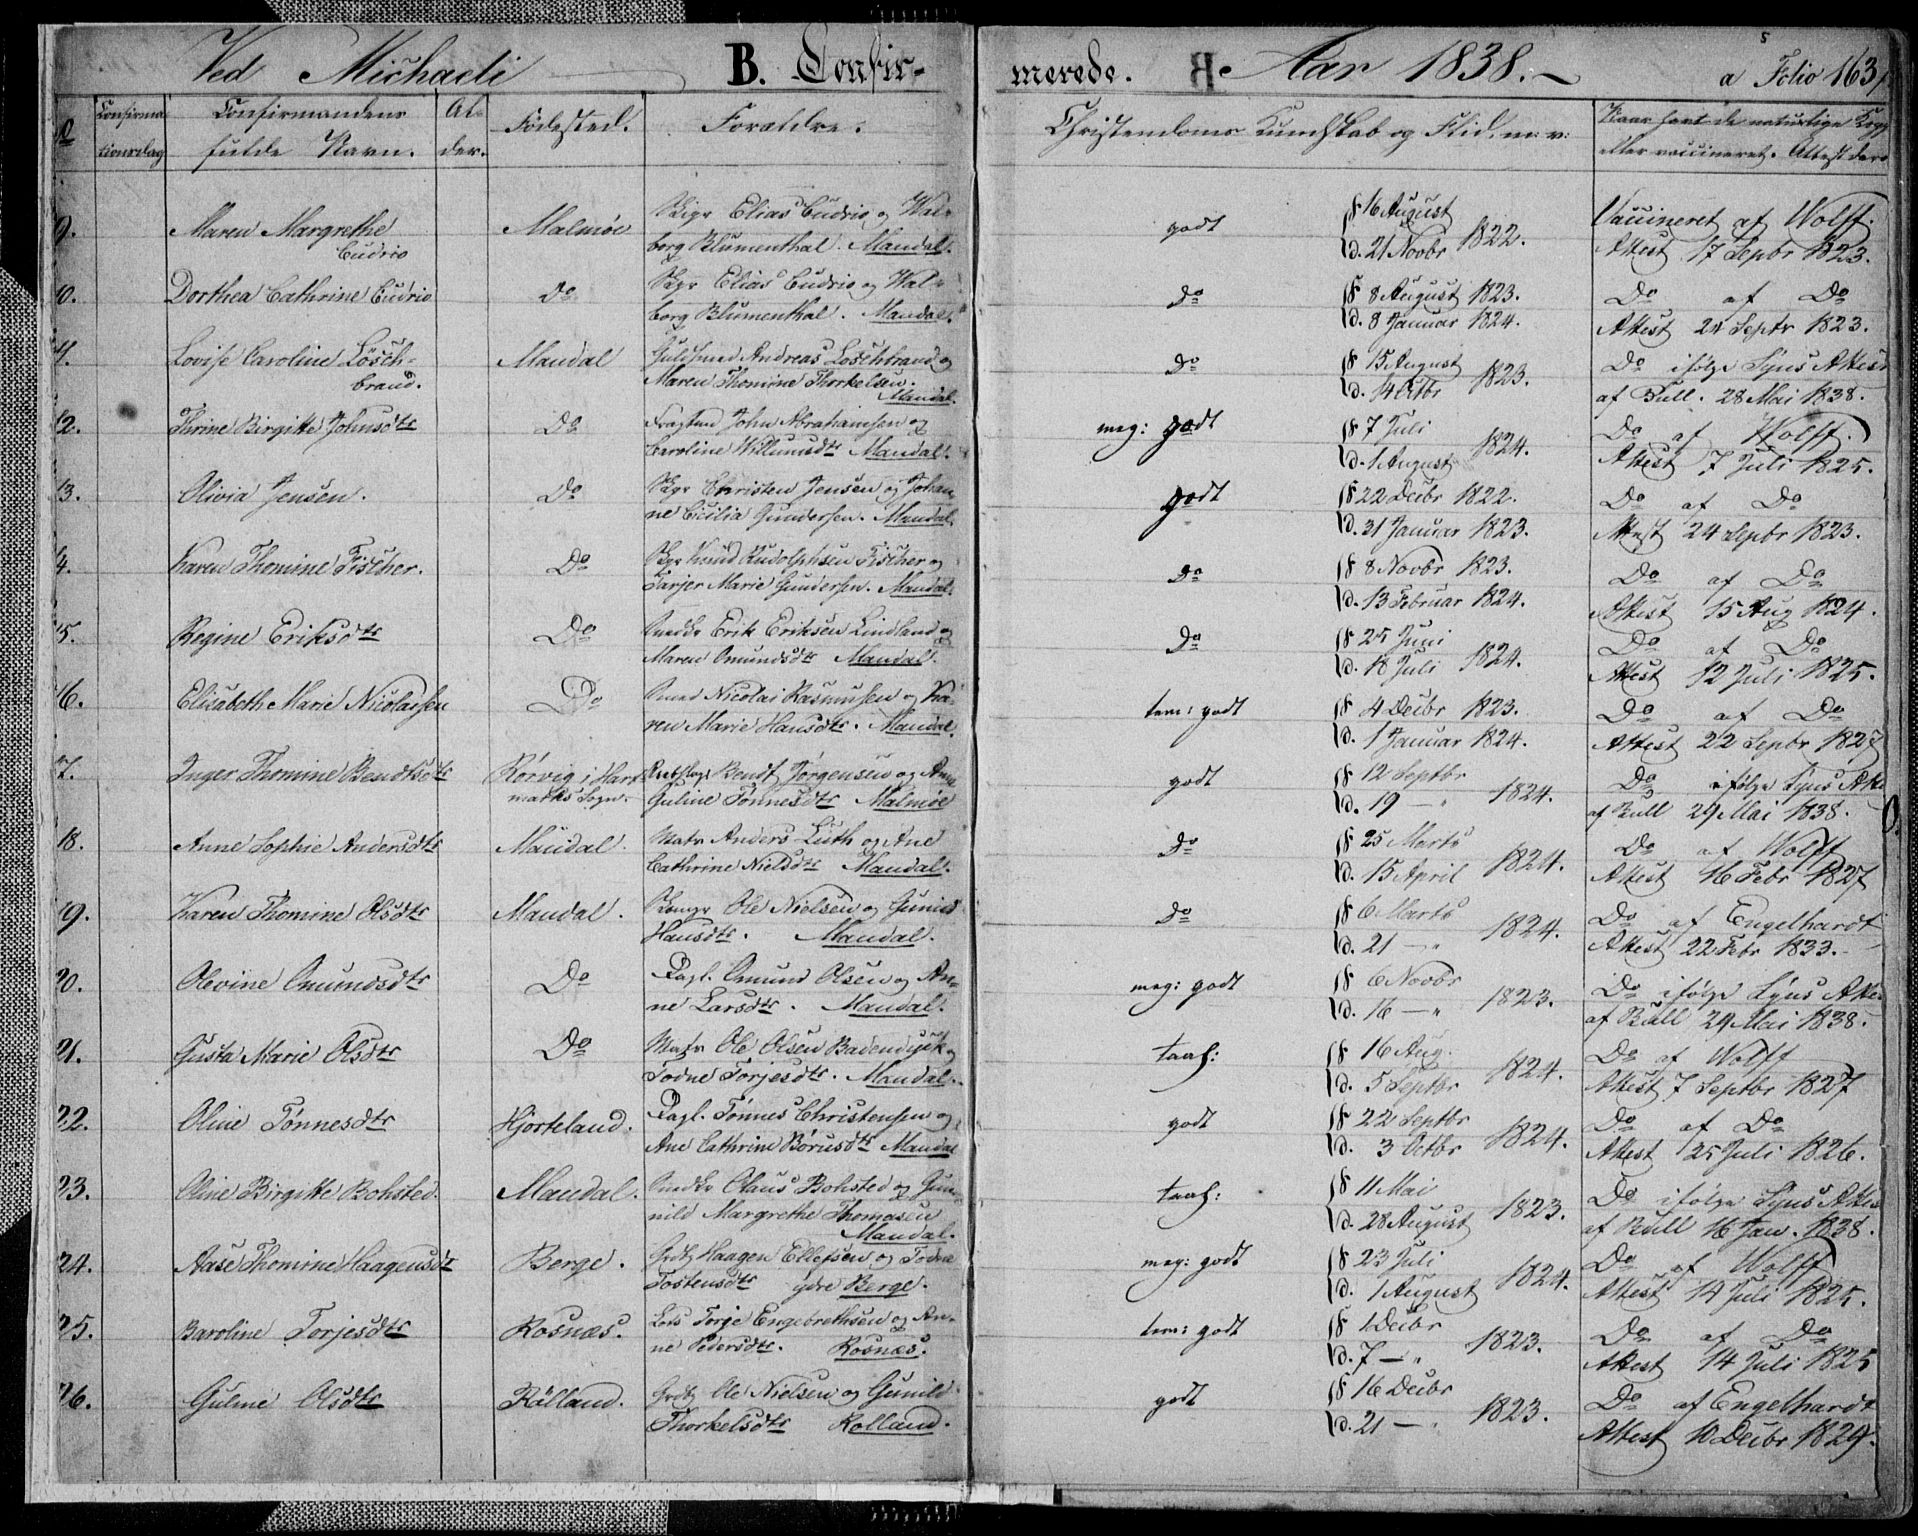 Ved Michaeli B. Confir-
merede. Aar 1838. a Folio 163
Confirma-
tionsdag
Confirmandens
fulde Navn.
Al-
der.
Födested.
Forældre.
Christendoms Kundskab og Flid. m: v:
Naar havt de naturlige Kopp
eller vaccineret. Attest der
9. Maren Margrethe
Cudrio
Malmöe
Skipr Elias Cudrio og Wal-
borg Blumenthal. Mandal.
godt
f 16 August
d. 21 Novbr 1822.
Vaccineret af Wolff.
Attest 17 Septbr 1823.
10. Dorthea Cathrine Cudrio
Do
Skpr Elias Cudrio og Wal-
borg Blumenthal. Mandal.
Do
f 8 August 1823.
d. 8 Januar 1824.
Do af Do
Attest 24 Septr 1823.
11. Lovise Caroline Lösch-
brand.
Mandal
Guldsmed Andreas Loschbrand og
Maren Thomine Thorkelsen.
Mandal.
Do
f 15 August
d. 14 Octbr 1823.
Do ifölge Syns Attest
af Bull. 28 Mai 1838.
12. Thrine Birgitte Johnsdtr
Do
Fragtmd John Abrahamsen og
Caroline Willumsdtr Mandal.
meg: godt
f 7 Juli
d. 1 August 1824.
Do af Wolff.
Attest 7 Juli 1825.
13. Olivia Jensen.
Do
Skpr Christen Jensen og Johan-
ne Cicilia Gundersen. Mandal.
godt
f 22 Decbr 1822.
d. 31 Januar 1823.
Do af Do
Attest 24 Septbr 1823.
14. Karen Thomine Fischer.
Do
Skpr Knud Rudolphsen Fischer og
Tarjer Marie Gundersen. Mandal.
Do
f 8 Novbr 1823.
d. 13 Februar 1824.
Do af Do
Attest 15 Aug 1824.
15. Regine Eriksdtr
Do
Snedkr Erik Eriksen Lindland og
Maren Omundsdtr Mandal.
Do
f 25 Juni
d. 18 Juli 1824.
Do af Do
Attest 12 Juli 1825.
16. Elisabeth Marie Nicolaisen
Do
Smed Nicolai Rasmussen og Ka-
ren Marie Hansdtr. Mandal.
tem: godt
f 4 Decbr 1823.
d. 1 Januar 1824.
Do af Do
Attest 22 Septbr 1827
17. Inger Thomine Bendtsdtr
Rörvig i Hart
marks Sogn.
Rebslagr Bendt Jörgensen og Ane
Guline Tönnesdtr Malmöe
godt
f 12 Septbr
d. 19 — " 1824.
Do ifölge Syns Att
af Bull 29 Mai 1838.
18. Anne Sophie Andersdtr
Mandal.
Matr Anders Luth og Ane
Cathrine Nielsdtr Mandal.
Do
f 25 Marts
d. 15 April 1824.
Do af Wolff
Attest 16 Febr 1827
19. Karen Thomine Olsdtr
Mandal.
Ole Nielsen og Gunild
Hansdtr. Mandal.
Do
f 6 Marts
d. 21 — " 1824.
Do af Engelhardt
Attest 22 Febr 1833.
20. Olevine Omundsdtr
Do
Dagl. Omund Olsen og An-
ne Larsdtr. Mandal.
meg: godt
f 6 Novbr
d. 16 — " 1823.
Do ifölge Syns Atte
af Bull 29 Mai 1838.
21. Gusta Marie Olsdtr
Do
Matr Ole Olsen Badendyck og
Todne Torjesdtr. Mandal.
taal:
f 16 Aug.
d. 5 Septbr 1824.
Do af Wolff
Attest 7 Septbr 1827
22. Oline Tönnesdtr
Hjorteland.
Dagl. Tönnes Christensen og
Ane Cathrine Börusdtr Mandal
godt
f 22 Septbr
d. 3 Octbr 1824.
Do af Do
Attest 25 Juli 1826.
23. Oline Birgitte Bohsted.
Mandal.
Snedkr Olaus Bohsted og Gun-
nild Margrethe Thomasen
Mandal.
taal:
f 11 Mai
d. 28 August 1823.
Do ifölge Syns Attes
af Bull 16 Jan. 1838.
24. Aase Thomine Haagensdtr
Berge.
Grdbr Haagen Ellefsen og Todne
Tostensdtr ydre Berge.
meg: godt
f 23 Juli
d. 1 August 1824.
Do af Wolff
Attest 14 Juli 1825.
25. Baroline Torjesdtr
Rosnæs.
Lods Torje Engebrethsen og An-
ne Pedersdtr. Rosnæs.
tem: godt
f 1 Decbr
d. 7 — " 1823.
Do af Do
Attest 14 Juli 1825
26. Guline Olsdtr
Rölland.
Grdbr Ole Nielsen og Gunild
Thorkelsdtr Rolland.
godt
f 16 Decbr
d. 21 — " 1823.
Do af Engelhardt
Attest 10 Decbr 1829.